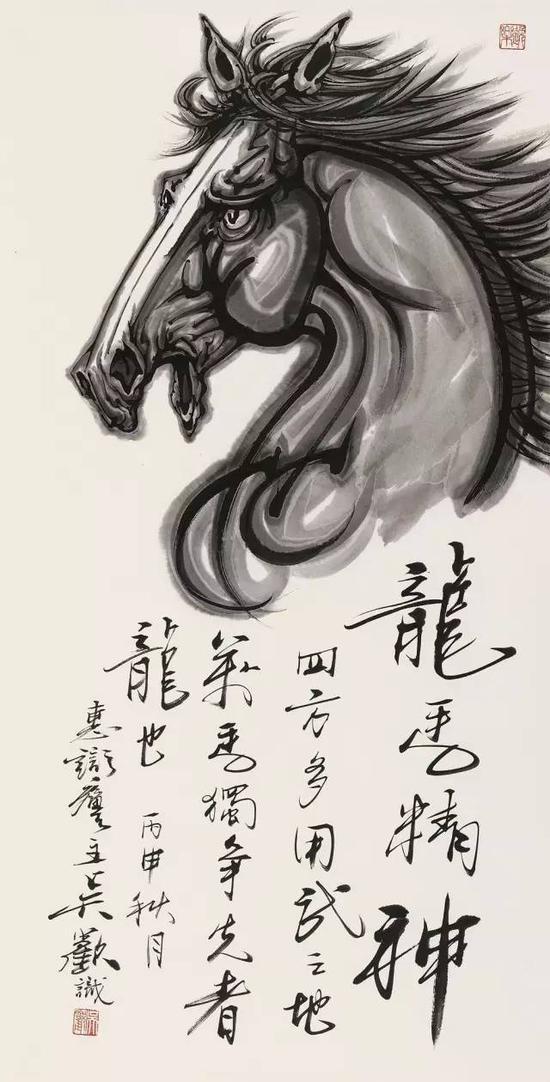 龍馬精神
四方多用武之地
萬馬獨爭先者
龍也 丙申秋月
主吳歡識